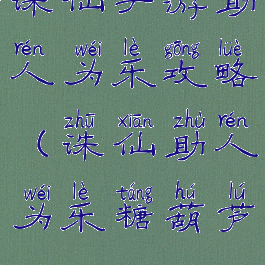 诛仙手游助
rén wéi lè gōng lüè
人为乐攻略
zhū xiān zhù rén
（诛仙助人
wéi lè táng hú lú
为乐糖葫芦